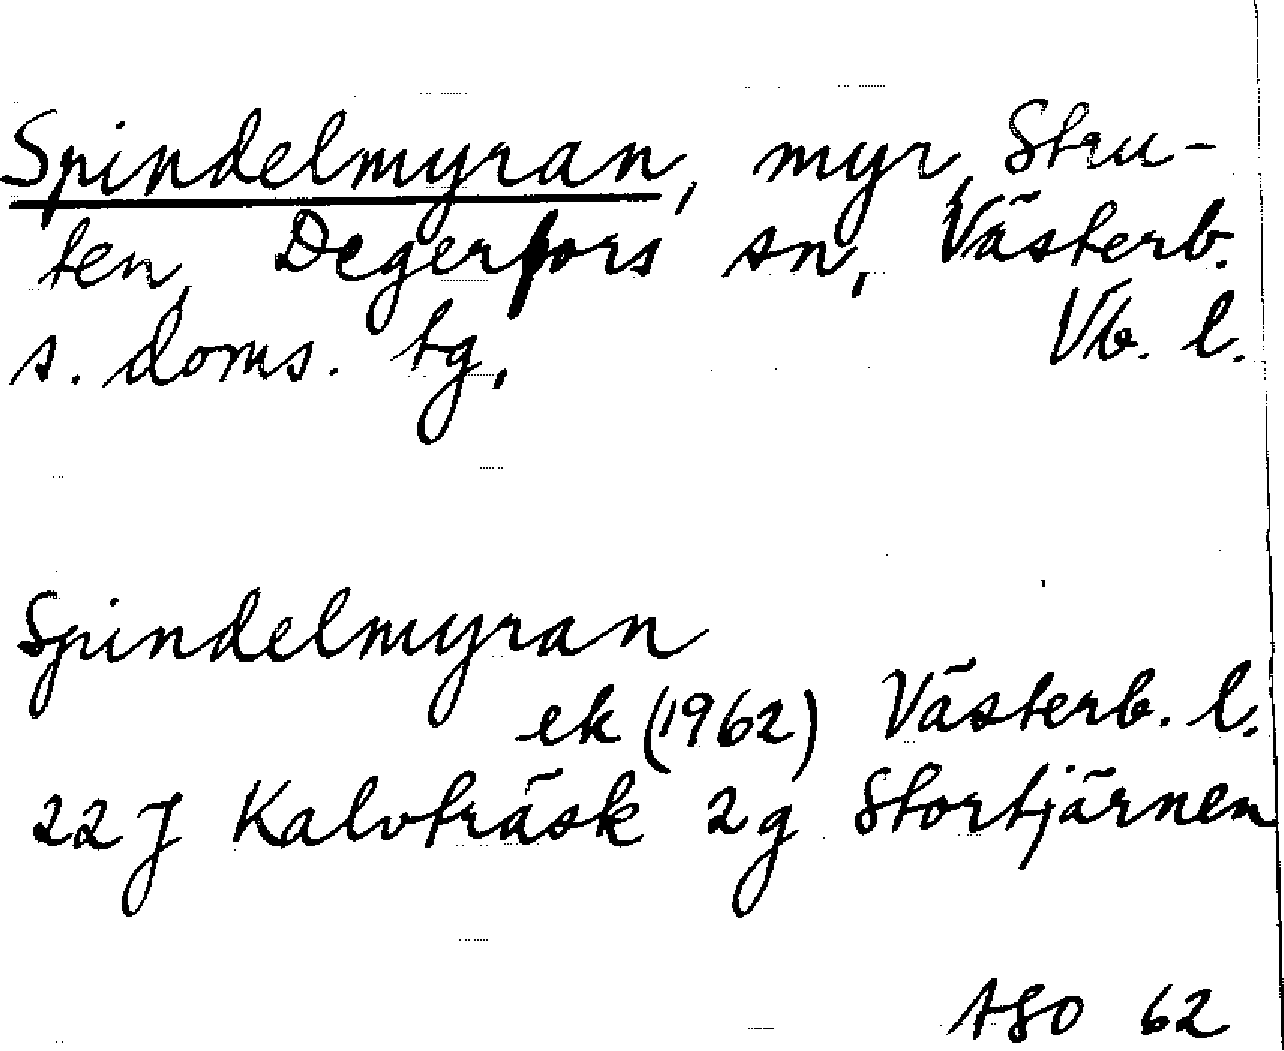 Spindelmyran, myr, Stru-
ten, Degerfors sn, Västerb.
s. doms. tg, Vb. l.
Spindelmyran
ek (1962) Västerb. l.
22 J Kalvträsk 2g Stortjärnen
ASO 62